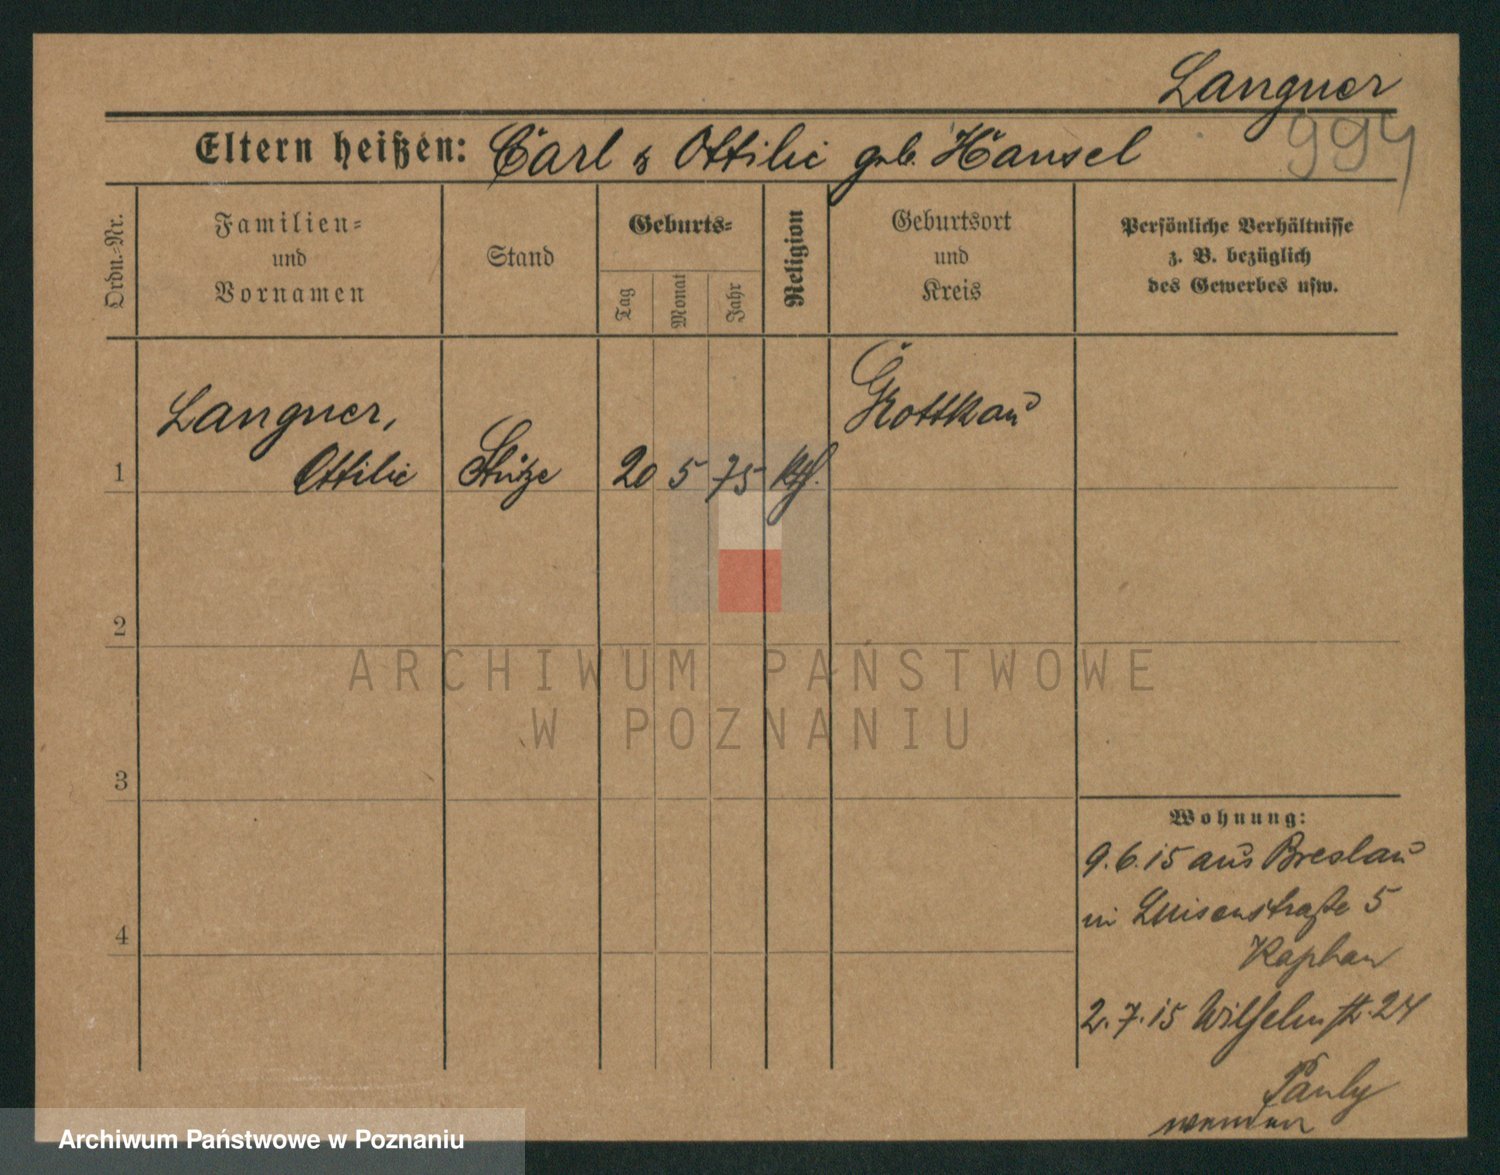 Langner
994
Eltern heißen: Carl & Ottilie geb. Hänsel
Ordn.-Nr.
Familien-
und
Vornamen
Stand
Geburts-
Tag
Monat
Jahr
Religion
Geburtsort
und
Kreis
Persönliche Verhältnisse
z. B. bezüglich
des Gewerbes usw.
1
Langner,
Ottilie
Stütze
20 5 75
kth.
Grottkau
2
3
4
Wohnung:
9.6.15 aus Breslau
in Luisenstraße 5
Kaphan
2.7.15 Wilhelmstr. 24
Pauly
wenden
ARCHIWUM PAŃSTWOWE
W POZNANIU
Archiwum Państwowe w Poznaniu